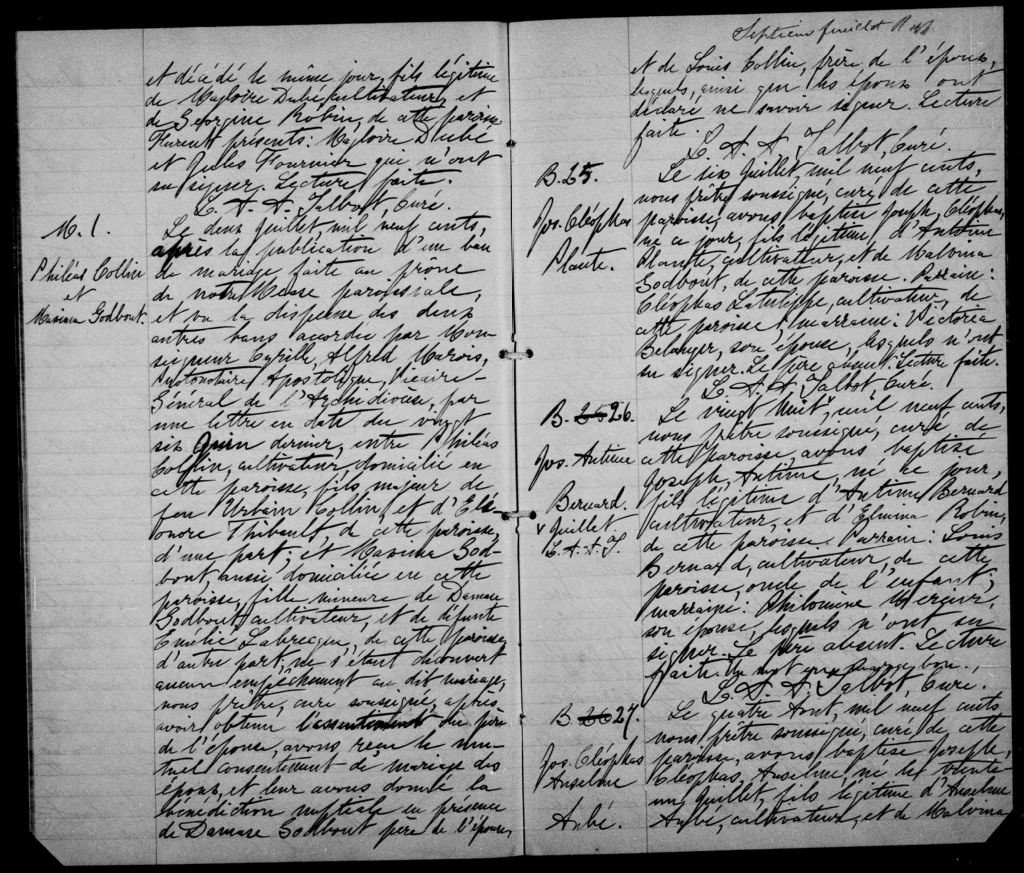 et décédé le même jour, fils légitime
de Magloire Dubé, cultivateur, et
de Georgine Robin, de cette paroisse
Furent présents: Magloire Dubé
et Jules Fournier qui n'ont
su signer. Lecture faite.
L. A. A. Talbot, Curé.
M. 1.
Philéas Collin
et
Godbout.
Le deux Juillet, mil neuf cents,
après la publication d'un ban
de mariage faite au prône
de notre Messe paroissiale,
et vu la dispense des deux
autres bans accordée par Mon-
seigneur Cyrille, Alfred Marois,
Protonotaire Apostolique, Vicaire-
Général de l'Archidiocèse, par
une lettre en date du vingt
six Juin dernier, entre Philéas
Collin, cultivateur, domicilié en
cette paroisse, fils majeur de
feu Urbain Collin et d'Elé-
onore Thibault, de cette paroisse,
d'une part; et God-
bout, aussi domiciliée en cette
paroisse, fille mineure de Damase
Godbout, cultivateur, et de défunte
Emilie Labrecque, de cette paroisse,
d'autre part; ne s'étant découvert
aucun empêchement au dit mariage,
nous prêtre, curé soussigné, après
avoir obtenu l'assentiment du père
de l'épouse, avons reçu le mu-
tuel consentement de mariage des
époux, et leur avons donné la
bénédiction nuptiale en présence
de Damase Godbout père de l'épouse,
Septième feuillet
et de Louis Collin, frère de l'époux,
lesquels, ainsi que les époux ont
déclaré ne savoir signer. Lecture
faite.
L. A. A. Talbot, Curé.
B. 25.
Jos. Cléophas
Plante.
Le six Juillet, mil neuf cents,
nous prêtre soussigné, curé de cette
paroisse, avons baptisé Joseph, Cléophas,
né ce jour, fils légitime d'Antoine
Plante, cultivateur, et de Malvina
Godbout, de cette paroisse. Parrain:
Cléophas Latulippe, cultivateur, de
cette paroisse; marraine: Victoria
Belanger, son épouse, lesquels n'ont
su signer. Le père absent. Lecture faite.
L. A. A. Talbot, Curé.
B. 26.
Jos. Antime
Bernard.
v Juillet
L. A. A. T.
Le vingt huit v, mil neuf cents,
nous prêtre soussigné, curé de
cette paroisse, avons baptisé
Joseph, Antime, né ce jour,
fils légitime d'Antime Bernard
cultivateur, et d'Elmina Robin,
de cette paroisse. Parrain: Louis
Bernard, cultivateur, de cette
paroisse, oncle de l'enfant;
marraine: Philomène Mercier,
son épouse, lesquels n'ont su
signer. Le père absent. Lecture
faite. Un mot en marge bon.
L. A. A. Talbot, Curé.
B. 27.
Jos. Cléophas
Anselme
Aubé.
Le quatre Août, mil neuf cents
nous prêtre soussigné, curé de cette
paroisse, avons baptisé Joseph,
Cléophas, Anselme, né le trente
un Juillet, fils légitime d'Anselme
Aubé, cultivateur, et de Malvina